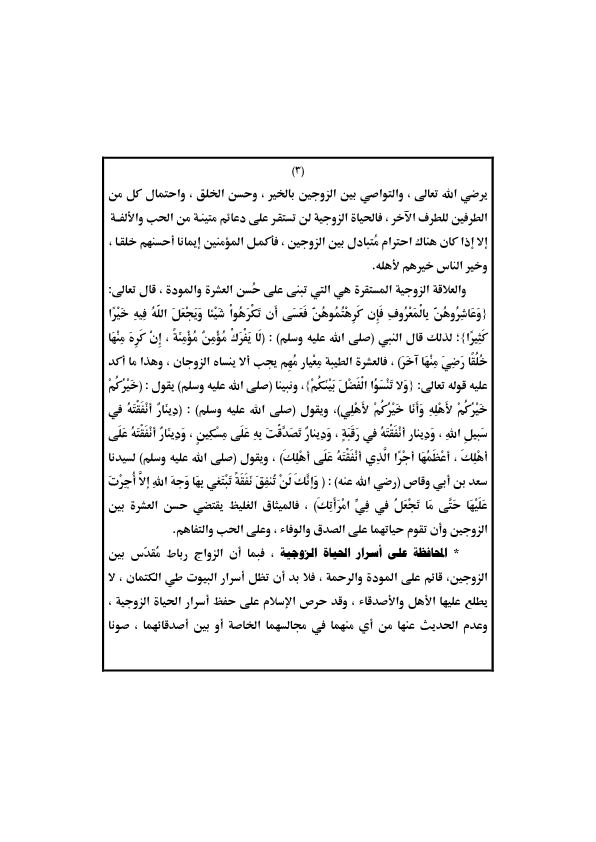 (٣)
يرضي الله تعالى ، والتواصي بين الزوجين بالخير ، وحسن الخلق ، واحتمال كل من
الطرفين للطرف الآخر ، فالحياة الزوجية لن تستقر على دعائم متينة من الحب والألفة
إلا إذا كان هناك احترام مُتبادل بين الزوجين ، فأكمل المؤمنين إيمانا أحسنهم خلقا ،
وخير الناس خيرهم لأهله.
والعلاقة الزوجية المستقرة هي التي تبنى على حُسن العشرة والمودة ، قال تعالى:
{وَعَاشِرُوهُنّ بِالْمَعْرُوفِ فَإِن كَرِهْتُمُوهُنّ فَعَسَى أَن تَكْرَهُواْ شَيْئا وَيَجْعَلَ اللّهُ فِيهِ خَيْرًا
كَثِيرًا}؛ لذلك قال النبي (صلى الله عليه وسلم) : (لَا يَفْرَكْ مُؤْمِنٌ مُؤْمِنَةً ، إِنْ كَرِهَ مِنْهَا
خُلُقًا رَضِيَ مِنْهَا آخَرَ) ، فالعشرة الطيبة مِعْيار مُهم يجب ألا ينساه الزوجان ، وهذا ما أكد
عليه قوله تعالى: {وَلا تَنْسَوُا الْفَضْلَ بَيْنَكُمْ}، ونبينا (صلى الله عليه وسلم) يقول : (خَيْرُكُمْ
خَيْرُكُمْ لأَهْلِهِ وَأَنا خَيْرُكُمْ لأَهْلِي)، ويقول (صلى الله عليه وسلم) : (دِينَارٌ أَنْفَقْتَهُ فِي
سَبِيلِ اللهِ ، وَدِينار أَنْفَقْتَهُ فِي رَقَبَةٍ ، وَدِينارٌ تَصَدَّقْتَ بِهِ عَلَى مِسْكِينٍ ، وَدِينارٌ أَنْفَقْتَهُ عَلَى
أَهْلِكَ ، أَعْظَمُهَا أَجْرًا الَّذِي أَنْفَقْتَهُ عَلَى أَهْلِكَ) ، ويقول (صلى الله عليه وسلم) لسيدنا
سعد بن أبي وقاص (رضي الله عنه): ( وَإِنَّكَ لَنْ تُنفِقَ نَفَقَةً تَبْتَغِي بِهَا وَجهَ اللهِ إلاَّ أُجِرْتَ
عَلَيْهَا حَتَّى مَا تَجْعَلُ في فِيِّ امْرَأَتِكَ) ، فالميثاق الغليظ يقتضي حسن العشرة بين
الزوجين وأن تقوم حياتهما على الصدق والوفاء ، وعلى الحب والتفاهم.
* المحافظة على أسرار الحياة الزوجية ، فبما أن الزواج رباط مُقدّس بين
الزوجين، قائم على المودة والرحمة ، فلا بد أن تظل أسرار البيوت طي الكتمان ، لا
يطلع عليها الأهل والأصدقاء ، وقد حرص الإسلام على حفظ أسرار الحياة الزوجية ،
وعدم الحديث عنها من أي منهما في مجالسهما الخاصة أو بين أصدقائهما ، صونا